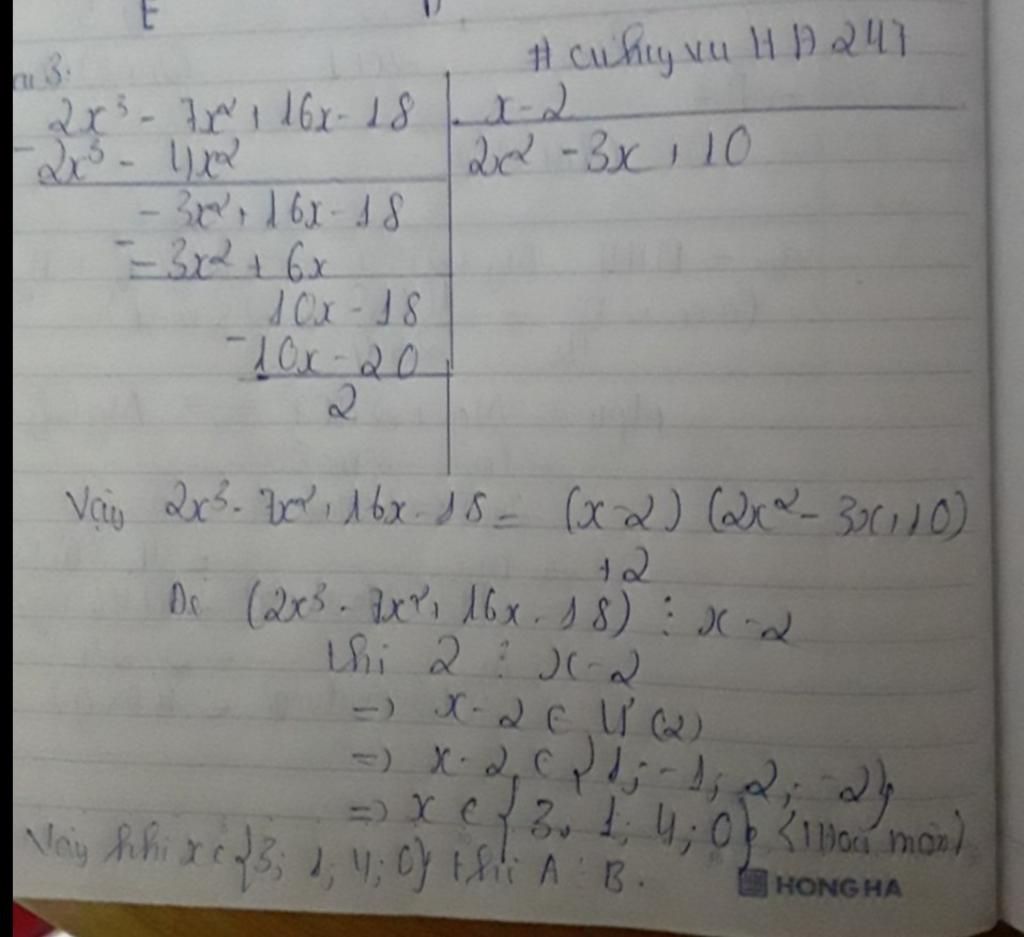 # cuhuyvu HA247
câu 3:
2x³ - 7x² + 16x - 18 | x - 2
- 2x³ - 4x² | 2x² - 3x + 10
- 3x² + 16x - 18
- - 3x² + 6x
10x - 18
- 10x - 20
2
Vậy 2x³ - 7x² + 16x - 18 = (x - 2) (2x² - 3x + 10)
+ 2
Để (2x³ - 7x² + 16x - 18) ⋮ x - 2
thì 2 ⋮ x - 2
=> x - 2 ∈ Ư (2)
=> x - 2 ∈ {1; -1; 2; -2}
=> x ∈ {3; 1; 4; 0} (Thoả mãn)
Vậy khi x ∈ {3; 1; 4; 0} thì A ⋮ B.
HONG HA